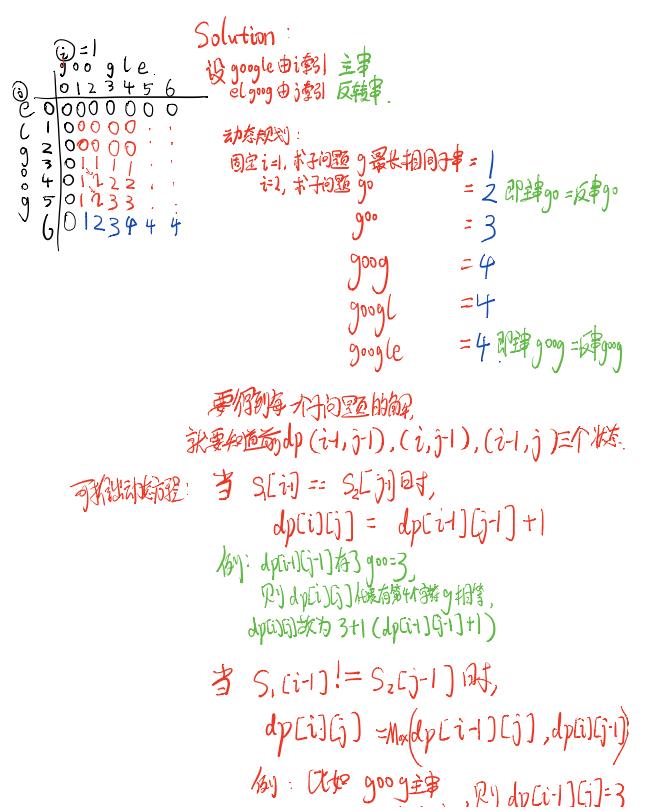 i=1
google
0 1 2 3 4 5 6
e 0 0 0 0 0 0 0 0
l 1 0 0 0 0 0 . .
g 2 0 0 0 0 0 . .
o 3 0 1 1 1 1 . .
o 4 0 1 2 2 2 . .
g 5 0 1 2 3 3 . .
6 0 1 2 3 4 4 4
Solution:
设google由i索引 主串
elgoog由j索引 反转串
动态规划:
固定i=1,求子问题 g 最长相同子串=1
i=2,求子问题 go =2 即主串go=反串go
goo =3
goog =4
googl =4
google =4 即主串goog=反串goog
要得到每一个子问题的解,
就要知道前dp(i-1,j-1),(i,j-1),(i-1,j)三个状态.
动态方程:
当 S1[i-1] == S2[j-1]时,
dp[i][j] = dp[i-1][j-1]+1
例: dp[i-1][j-1]存了goo=3,
则dp[i][j]代表有第4个字符g相等,
dp[i][j]故为3+1(dp[i-1][j-1]+1)
当 S1[i-1] != S2[j-1]时,
dp[i][j] =Max(dp[i-1][j],dp[i][j-1])
例: 比如 goog主串
,则dp[i-1][j]=3